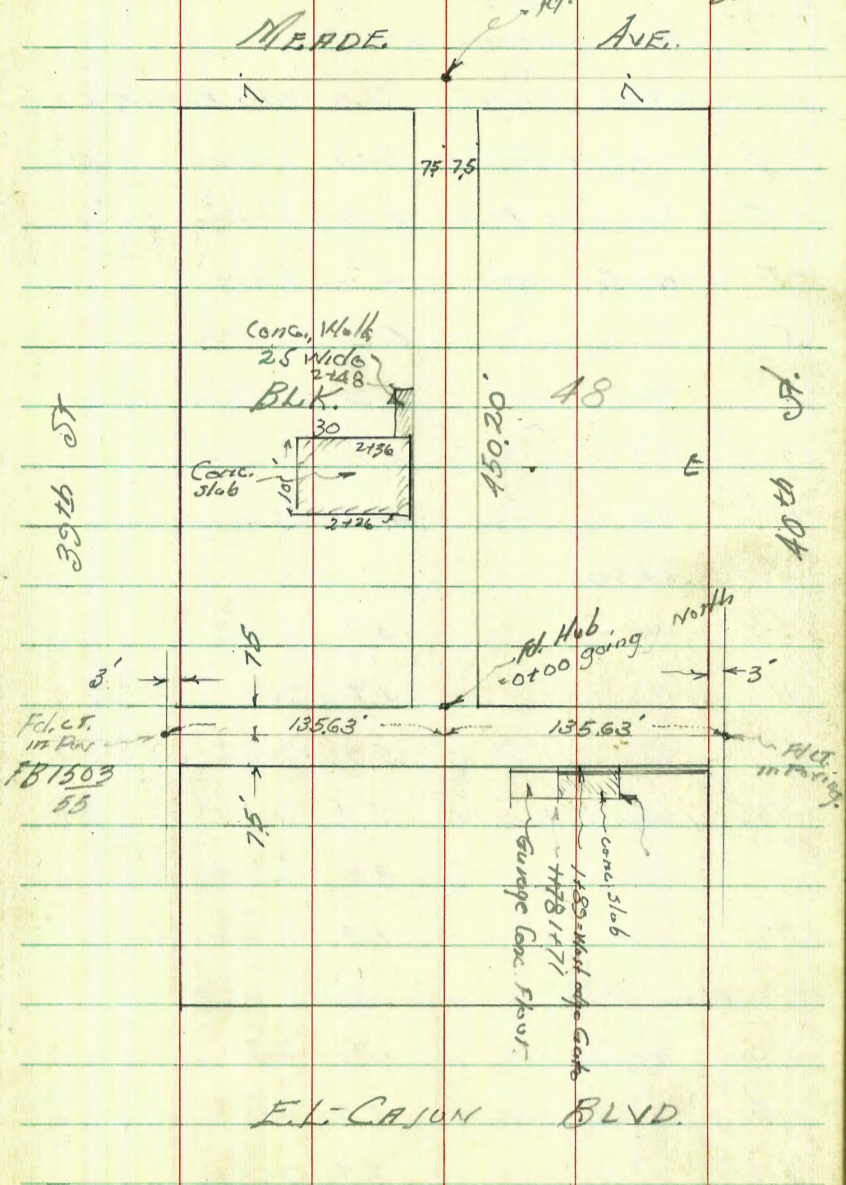 MEADE AVE.
7' 7'
7.5 7.5
Conc. Walk
2.5 Wide
2+48
BLK. 48
30
2+36
Conc.
slab
10'
2+26
450.20'
39th St
40th St.
E
Fd. Hub
0+00 going North
3' 3'
7.5
135.63' 135.63'
Fd. ct.
in Pav
FB 1503
55
Fd ct.
in Paving.
7.5'
conc. slab
1+89 = West edge
1+78 1+71
Garage Conc. Floor.
EL-CAJON BLVD.